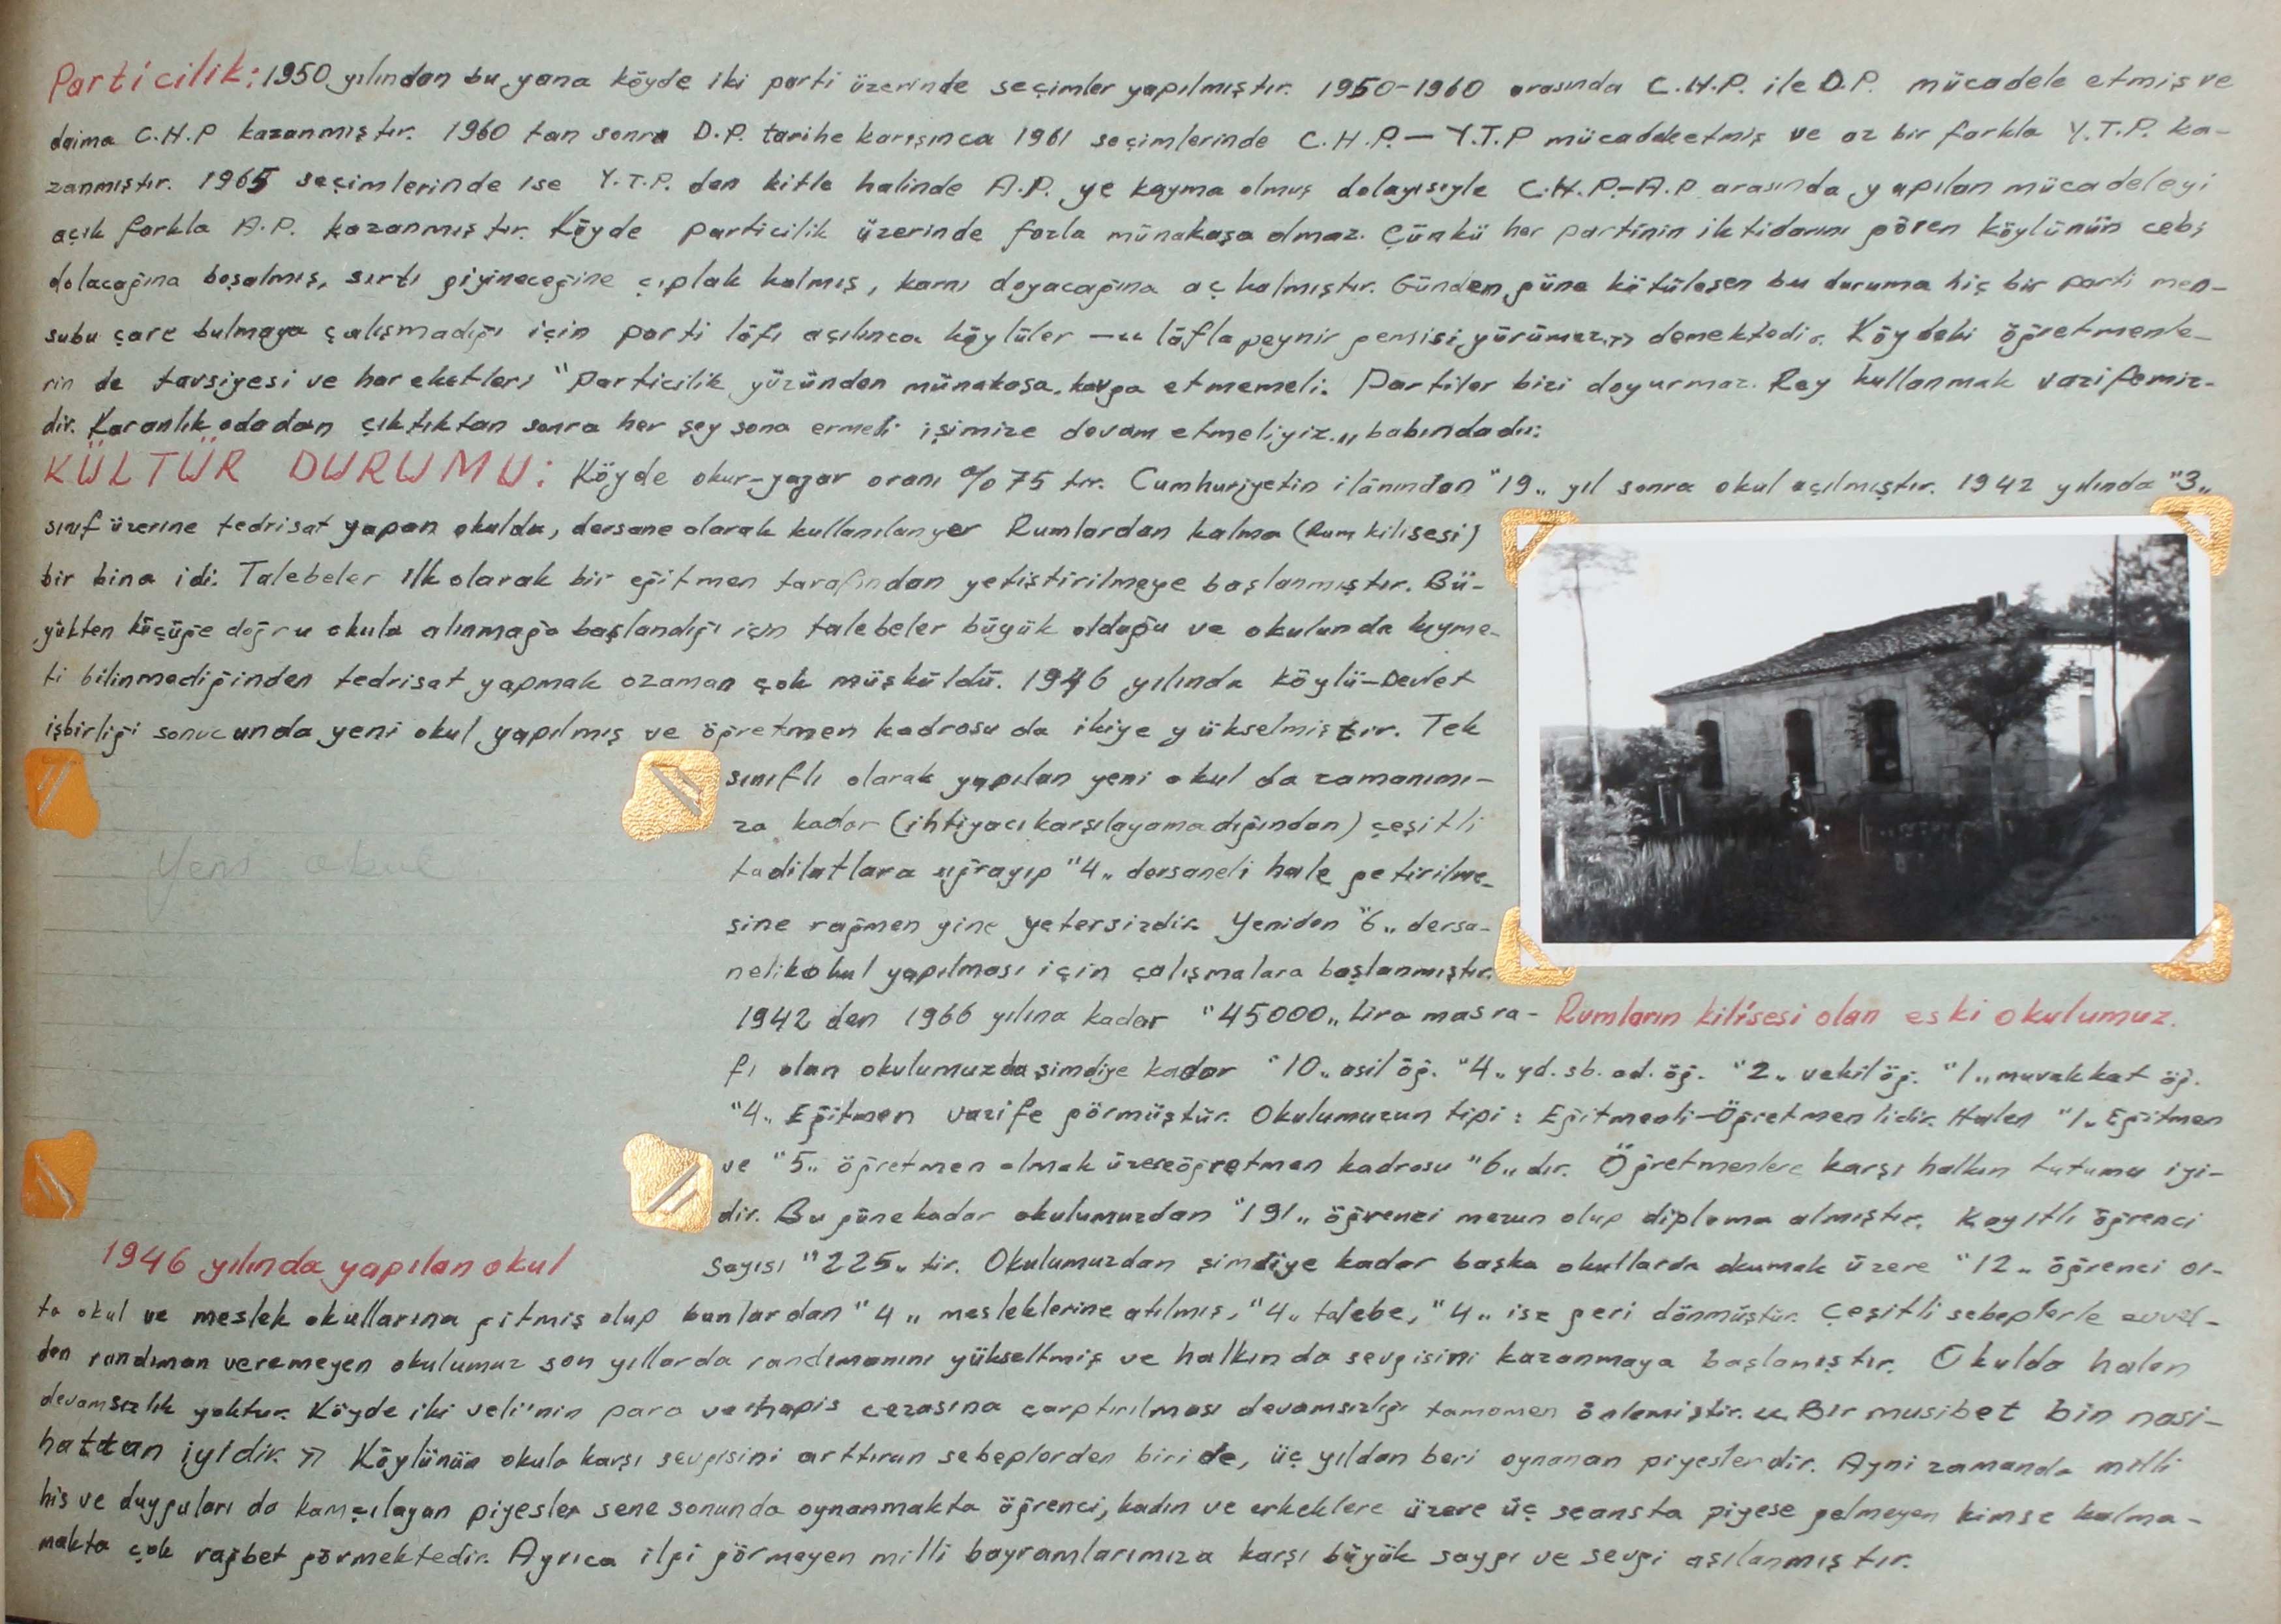 Particilik: 1950 yılından bu yana köyde iki parti üzerinde seçimler yapılmıştır. 1950-1960 arasında C.H.P. ile D.P. mücadele etmiş ve
daima C.H.P kazanmıştır. 1960 tan sonra D.P. tarihe karışınca 1961 seçimlerinde C.H.P. — Y.T.P mücadele etmiş ve az bir farkla Y.T.P. ka-
zanmıştır. 1965 seçimlerinde ise Y.T.P. den kitle halinde A.P. ye kayma olmuş dolayısıyle C.H.P.-A.P arasında yapılan mücadeleyi
açık farkla A.P. kazanmıştır. Köyde particilik üzerinde fazla münakaşa olmaz. Çünkü her partinin iktidarını gören köylünün cebi
dolacağına boşalmış, sırtı giyineceğine çıplak kalmış, karnı doyacağına aç kalmıştır. Günden güne kötüleşen bu duruma hiç bir parti men-
subu çare bulmaya çalışmadığı için parti lâfı açılınca köylüler — « lâfla peynir gemisi yürümez.» demektedir. Köydeki öğretmenle-
rin de tavsiyesi ve hareketleri "Particilik yüzünden münakaşa, kavga etmemeli. Partiler bizi doyurmaz. Rey kullanmak vazifemiz-
dir. Karanlık odadan çıktıktan sonra her şey sona ermeli işimize devam etmeliyiz.„ babındadır:
KÜLTÜR DURUMU: Köyde okur-yazar oranı %75 tir. Cumhuriyetin ilânından "19„ yıl sonra okul açılmıştır. 1942 yılında "3„
sınıf üzerine tedrisat yapan okulda, dersane olarak kullanılan yer Rumlardan kalma (Rum kilisesi)
bir bina idi. Talebeler ilk olarak bir eğitmen tarafından yetiştirilmeye başlanmıştır. Bü-
yükten küçüğe doğru okula alınmağa başlandığı için talebeler büyük olduğu ve okulunda kıyme-
ti bilinmediğinden tedrisat yapmak ozaman çok müşküldü. 1946 yılında köylü-Devlet
işbirliği sonucunda yeni okul yapılmış ve öğretmen kadrosu da ikiye yükselmiştir. Tek
sınıflı olarak yapılan yeni okul da zamanımı-
za kadar (ihtiyacı karşılayamadığından) çeşitli
tadilatlara uğrayıp "4„ dersaneli hale getirilme-
sine rağmen yine yetersizdir. Yeniden "6„ dersa-
nelik okul yapılması için çalışmalara başlanmıştır.
1942 den 1966 yılına kadar "45000„ lira masra-
fı olan okulumuzda şimdiye kadar "10„ asil öğ. "4„ yd. sb. ad. öğ. "2„ vekil öğ. "1„ muvakkat öğ.
"4„ Eğitmen vazife görmüştür. Okulumuzun tipi: Eğitmenli-Öğretmenlidir. Halen "1„ Eğitmen
ve "5„ öğretmen olmak üzere öğretmen kadrosu "6„ dır. Öğretmenlere karşı halkın tutumu iyi-
dir. Bu güne kadar okulumuzdan "191„ öğrenci mezun olup diploma almıştır. Kayıtlı öğrenci
sayısı "225„ tir. Okulumuzdan şimdiye kadar başka okullarda okumak üzere "12„ öğrenci or-
ta okul ve meslek okullarına gitmiş olup bunlardan "4„ mesleklerine atılmış, "4„ talebe, "4„ ise geri dönmüştür. Çeşitli sebeplerle evvel-
den randıman veremeyen okulumuz son yıllarda randımanını yükseltmiş ve halkında sevgisini kazanmaya başlamıştır. Okulda halen
devamsızlık yoktur. Köyde iki veli'nin para ve hapis cezasına çarptırılması devamsızlığı tamamen önlemiştir. « Bir musibet bin nasi-
hattan iyidir. » Köylünün okula karşı sevgisini arttıran sebeplerden biride, üç yıldan beri oynanan piyeslerdir. Ayni zamanda milli
his ve duyguları da kamçılayan piyesler sene sonunda oynanmakta öğrenci, kadın ve erkeklere üzere üç seansta piyese gelmeyen kimse kalma-
makta çok rağbet görmektedir. Ayrıca ilgi görmeyen milli bayramlarımıza karşı büyük saygı ve sevgi aşılanmıştır.
Rumların kilisesi olan eski okulumuz.
Yeni okul
1946 yılında yapılan okul